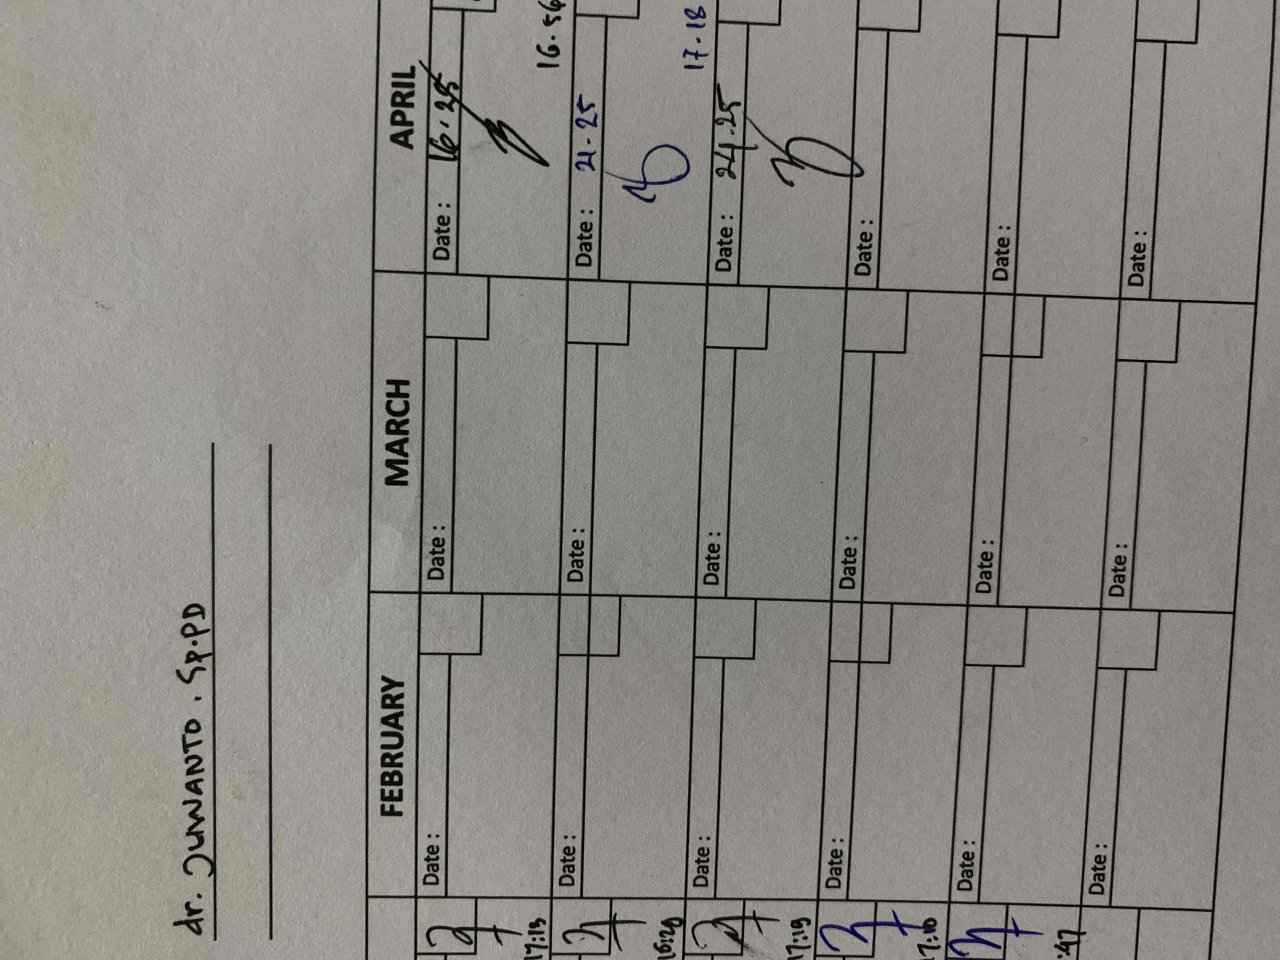 dr. JUWANTO . Sp.PD
FEBRUARY MARCH APRIL
Date : Date : Date : 16.25
17:13 16.56
Date : Date : Date : 21.25
16:20 17.18
Date : Date : Date : 24.25
17:19
Date : Date : Date :
17:10
Date : Date : Date :
:47
Date : Date : Date :